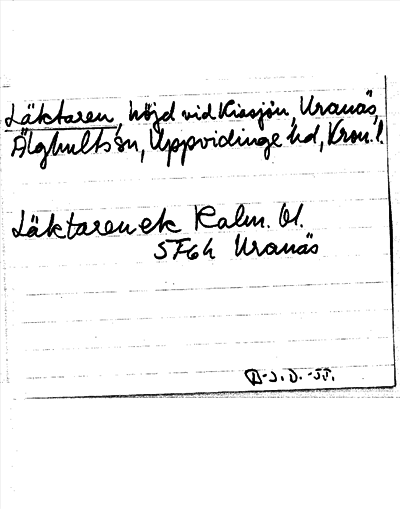 Läktaren, höjd vid Kiasjön, Uranäs,
Älghults sn, Uppvidinge hd, Kron. l.
Läktaren ek Kalm. bl.
5F6h Uranäs
D-J. D. -55.